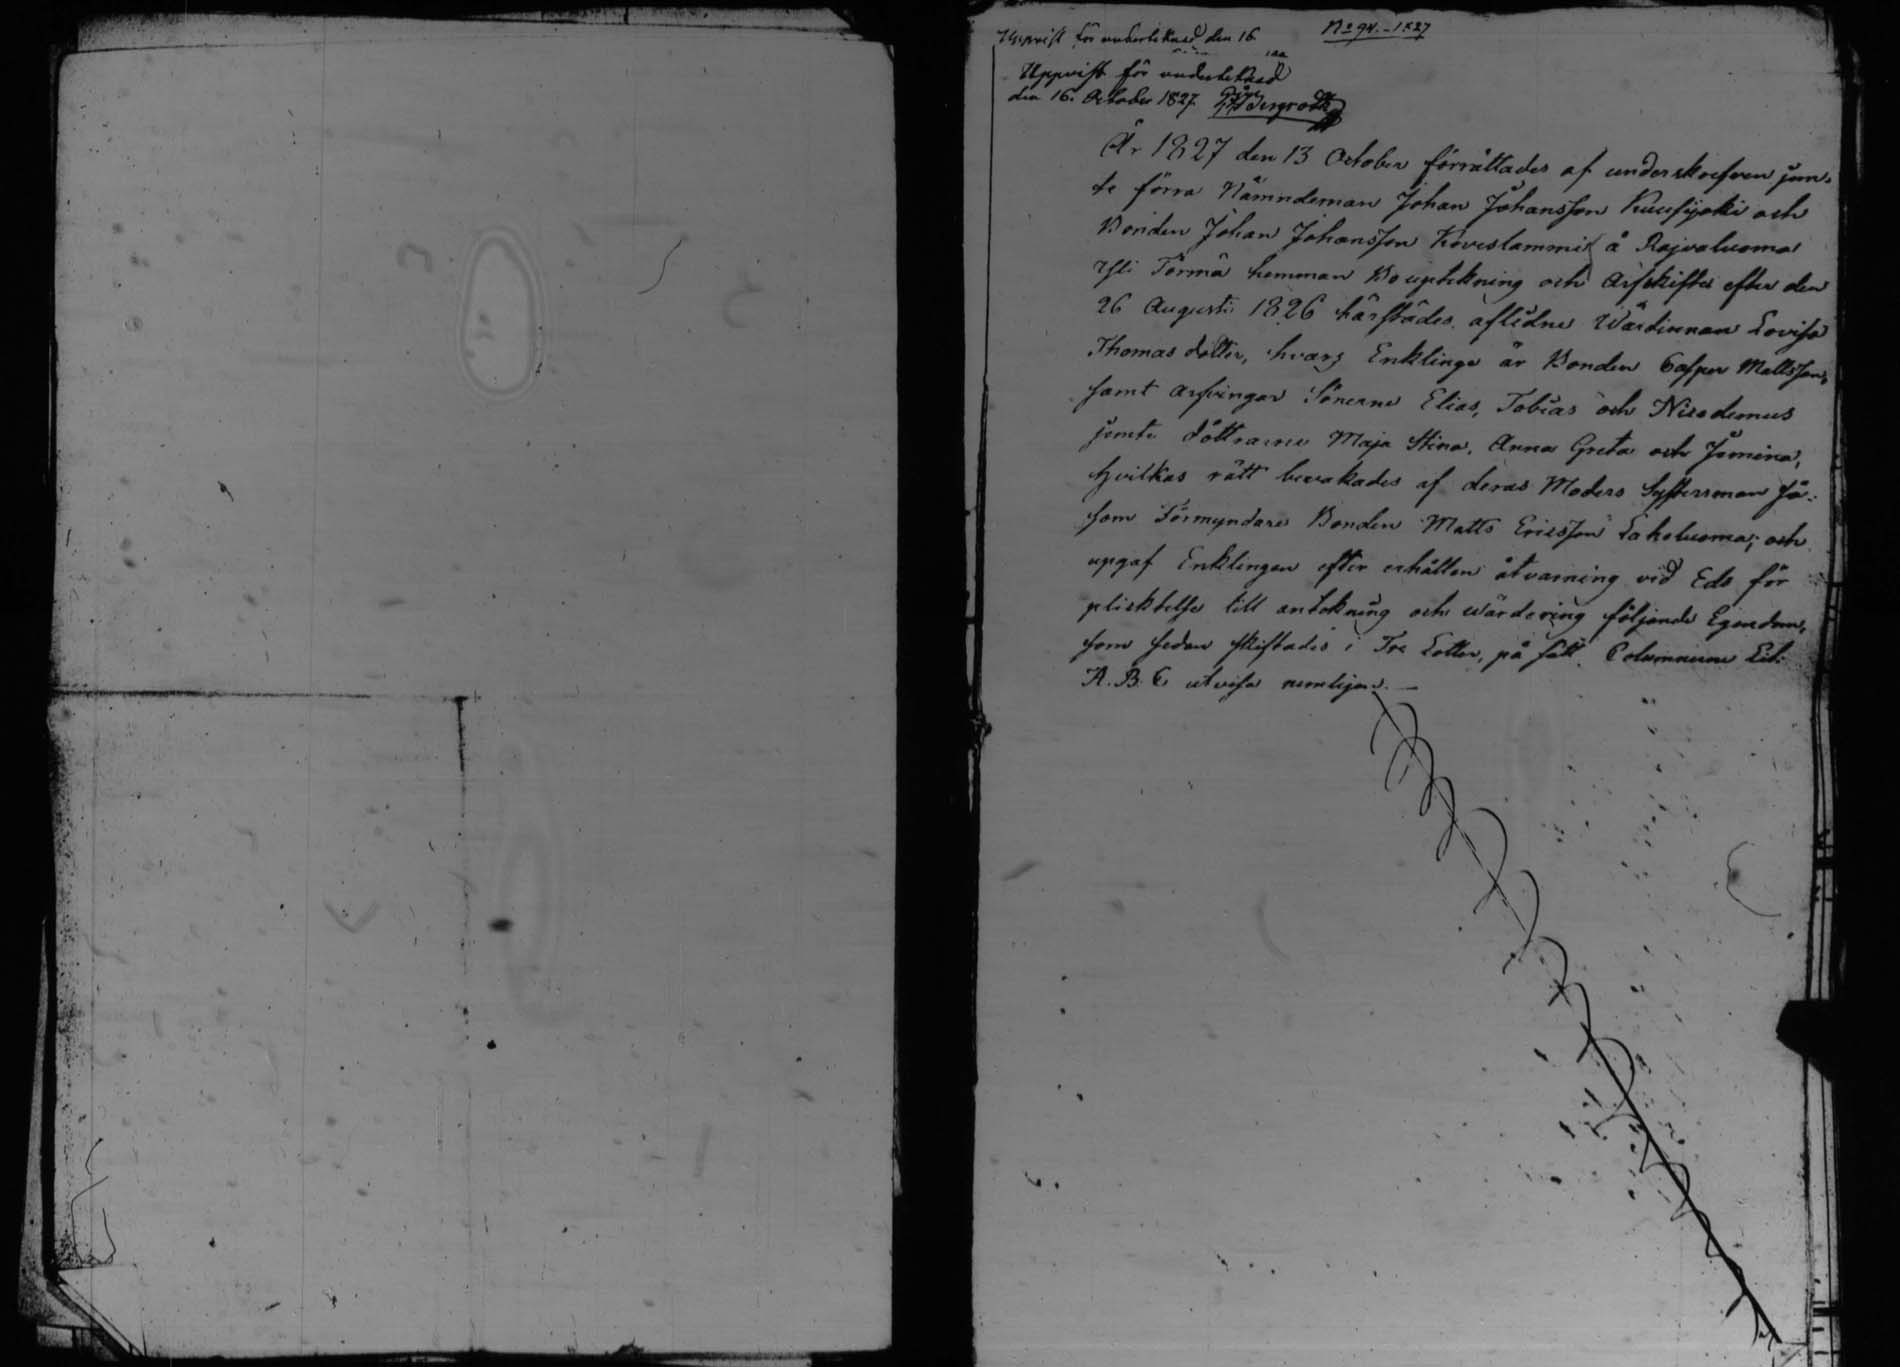 Uppvist för undertecknad den 16.
No 94. - 1827
Uppvist för undertecknad
den 16. October 1827.
År 1827 den 13 October förrättades af underskrefven jem-
te förra Nämndeman Johan Johansson Kuusijoki och
Bonden Johan Johansson Koveslammi å Rajvaluoma
Yli Törmä hemman Bouptekning och Arfskifte efter den
26 Augusti 1826 härstädes aflidne Wärdinnan Lovisa
Thomas dotter, hvars Enklinge är Bonden Casper Mattsson,
samt arfvingar Sönerne Elias, Tobias och Nicodemus
jemte döttrarne Maja Stina, Anna Greta och Jemina,
hvilkas rätt bevakades af deras Moders Systersman så-
som Förmyndare Bonden Matts Ericsson Laholuoma; och
upgaf Enklingen efter erhållen åtvarning vid Eds för
pliktelse till antekning och värdering följande Egendom,
som sedan skiftades i Tre Lotter, på sätt Columnerne Lit:
A. B. C utvisa nemligen. —